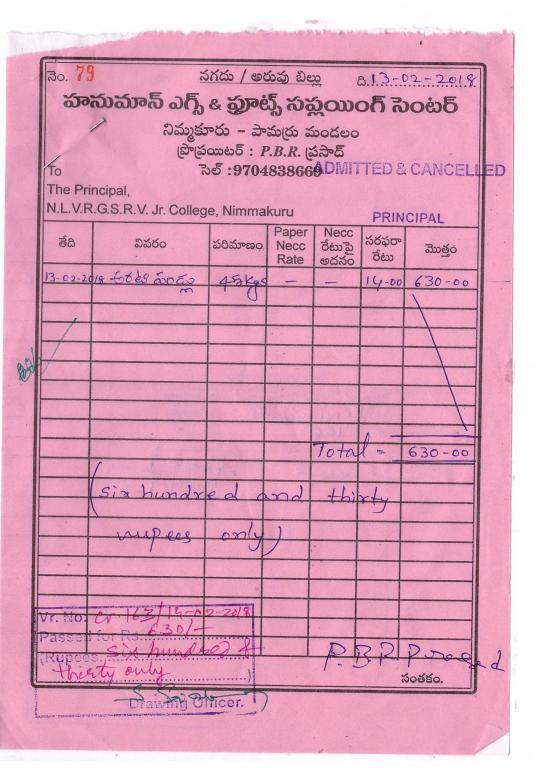 నెం. 79 నగదు / అరువు బిల్లు ది. 13-02-2018
హనుమాన్ ఎగ్స్ & ఫ్రూట్స్ సప్లయింగ్ సెంటర్
నిమ్మకూరు - పామర్రు మండలం
ప్రొప్రయిటర్ : P.B.R. ప్రసాద్
To సెల్ :9704838669 ADMITTED & CANCELLED
The Principal,
N.L.V.R.G.S.R.V. Jr. College, Nimmakuru
PRINCIPAL
తేది వివరం పరిమాణం Paper Necc Rate Necc రేటుపై అదనం సరఫరా రేటు మొత్తం
13-02-2018 అరటి పండ్లు 45kgs - - 14-00 630-00
Total = 630-00
(six hundred and thirty
rupees only)
Vr. No. cr 163/14-02-2018
Passed for Rs. 630/-
(Rupees six hundred &
thirty only )
Drawing Officer.
P.B.R Prasad
సంతకం.